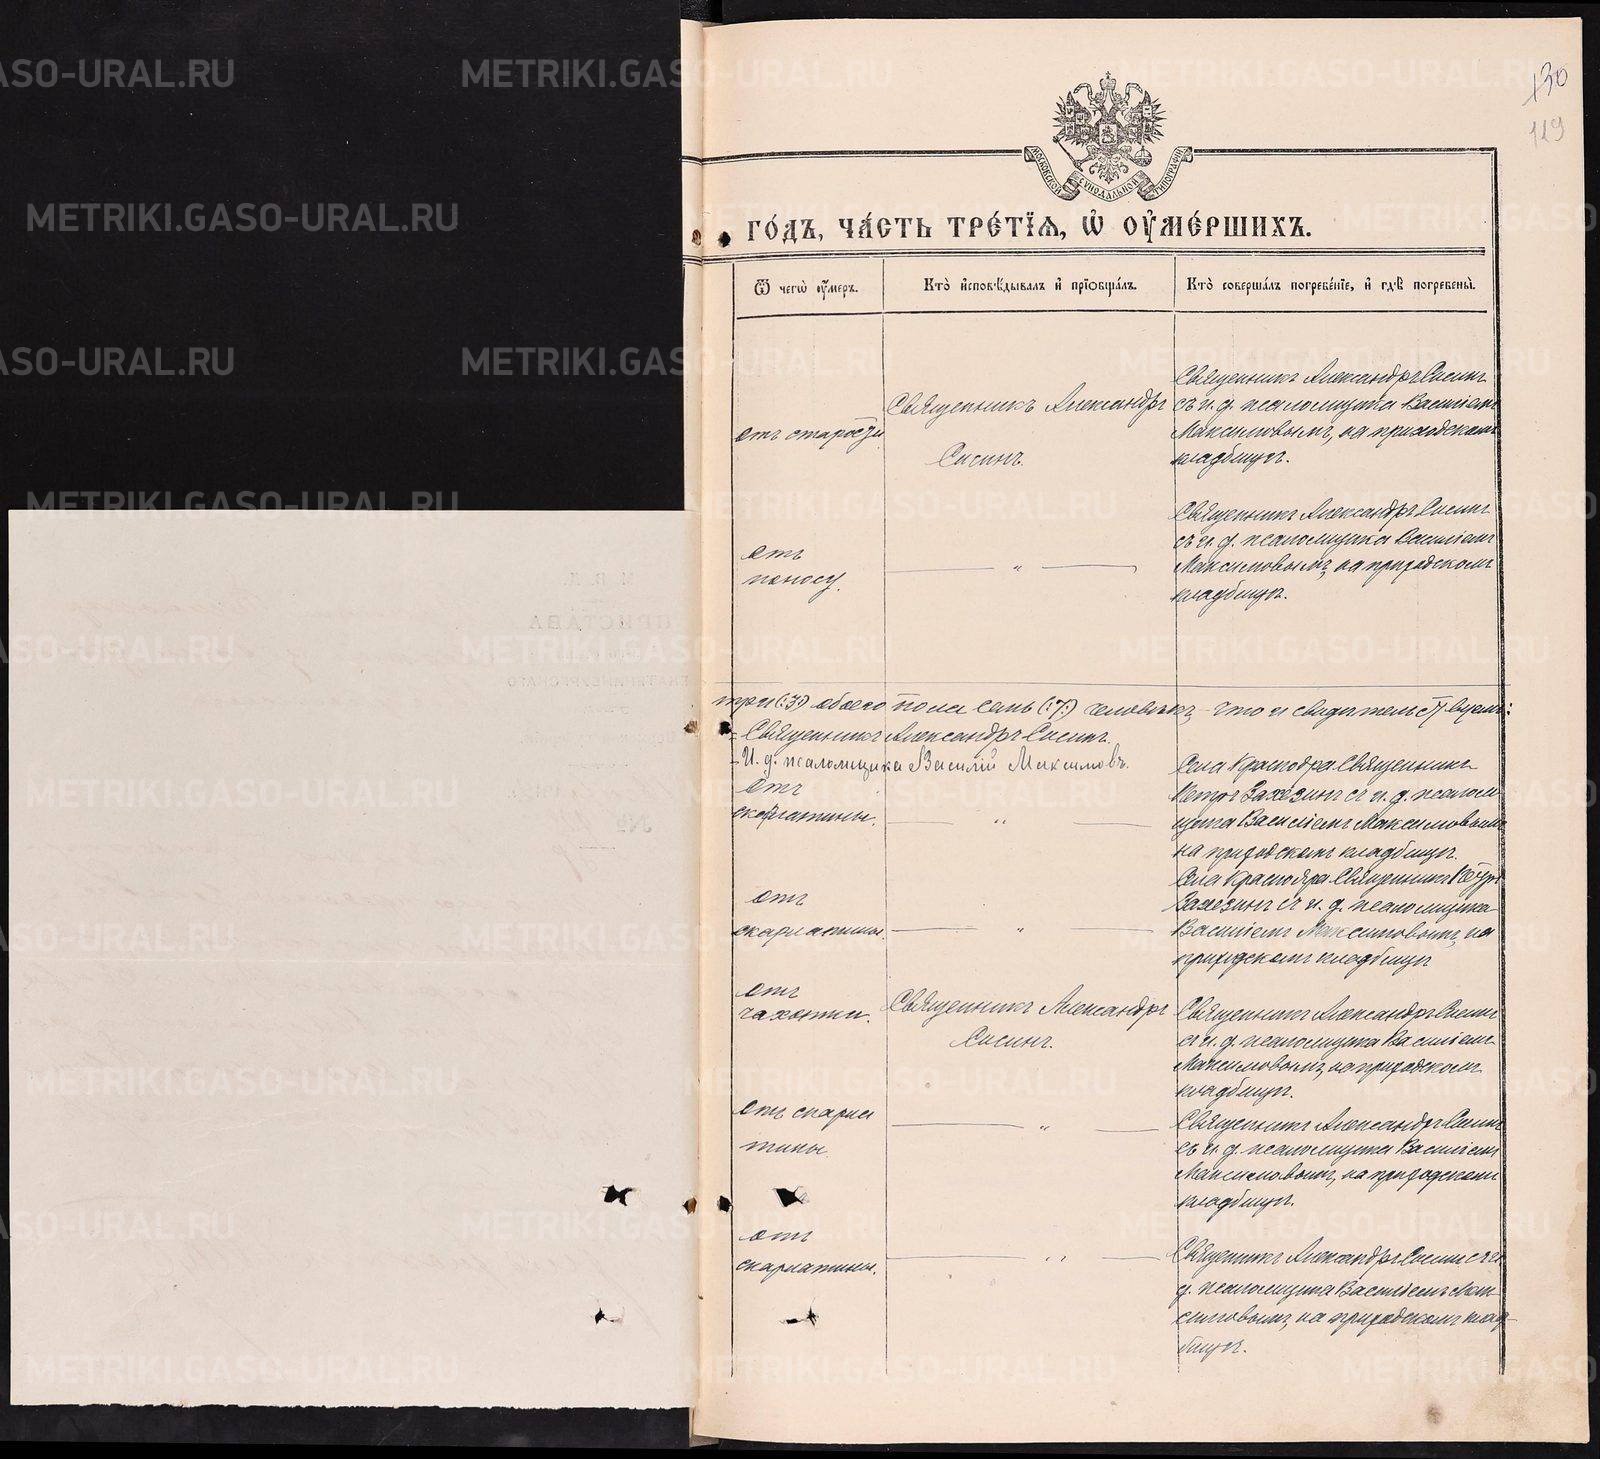 130
119
МОСКОВСКОЙ СѴНОДАЛЬНОЙ ТИПОГРАФІИ
ГО́ДЪ, ЧА́СТЬ ТРЕ́ТІѦ, Ѡ҆ ОУ҆МЕ́РШИХЪ.
Ѿ чегѡ̀ оу҆́меръ.
Кто̀ и҆сповѣ́дывалъ и҆ прїѡбща́лъ.
Кто̀ соверша́лъ погребе́нїе, и҆ гдѣ̀ погребены̀.
отъ старости
Священникъ Александръ
Сисинъ.
Священникъ Александръ Сисинъ
съ и. д. псаломщика Василіемъ
Максимовымъ, на приходскомъ
кладбищѣ.
отъ
поносу.
— " —
Священникъ Александръ Сисинъ
съ и. д. псаломщика Василіемъ
Максимовымъ, на приходскомъ
кладбищѣ.
три (:3:) обоего пола семь (:7:) человѣкъ, что и свидѣтельствуемъ:
Священникъ Александръ Сисинъ.
И. д. псаломщика Василій Максимовъ.
отъ
скарлатины.
— " —
Села Краснояра Священникъ
Петръ съ и. д. псалом
щика Василіемъ Максимовымъ
на приходскомъ кладбищѣ.
отъ
скарлатины.
— " —
Села Краснояра Священникъ Петръ
съ и. д. псаломщика
Василіемъ Максимовымъ, на
приходскомъ кладбищѣ
отъ
чахотки.
Священникъ Александръ
Сисинъ.
Священникъ Александръ Сисинъ
съ и. д. псаломщика Василіемъ
Максимовымъ, на приходскомъ
кладбищѣ.
отъ скарла
тины.
— " —
Священникъ Александръ Сисинъ
съ и. д. псаломщика Василіемъ
Максимовымъ, на приходскомъ
кладбищѣ.
отъ
скарлатины.
— " —
Священникъ Александръ Сисинъ съ и.
д. псаломщика Василіемъ Мак
симовымъ, на приходскомъ клад-
бищѣ.
METRIKI.GASO-URAL.RU